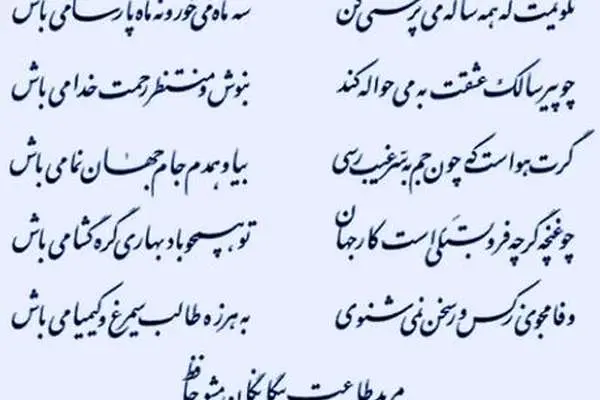 نگویمت که همه ساله می پرستی کن سه ماه می خور و نه ماه پارسا می باش
چو پیر سالک عشقت به می حواله کند بنوش و منتظر رحمت خدا می باش
گرت هواست که چون جم به سر غیب رسی بیا و همدم جام جهان نما می باش
چو غنچه گرچه فروبستگی است کار جهان تو همچو باد بهاری گره گشا می باش
وفا مجوی ز کس ور سخن نمی شنوی به هرزه طالب سیمرغ و کیمیا می باش
مرید طاعت بیگانگان مشو حافظ